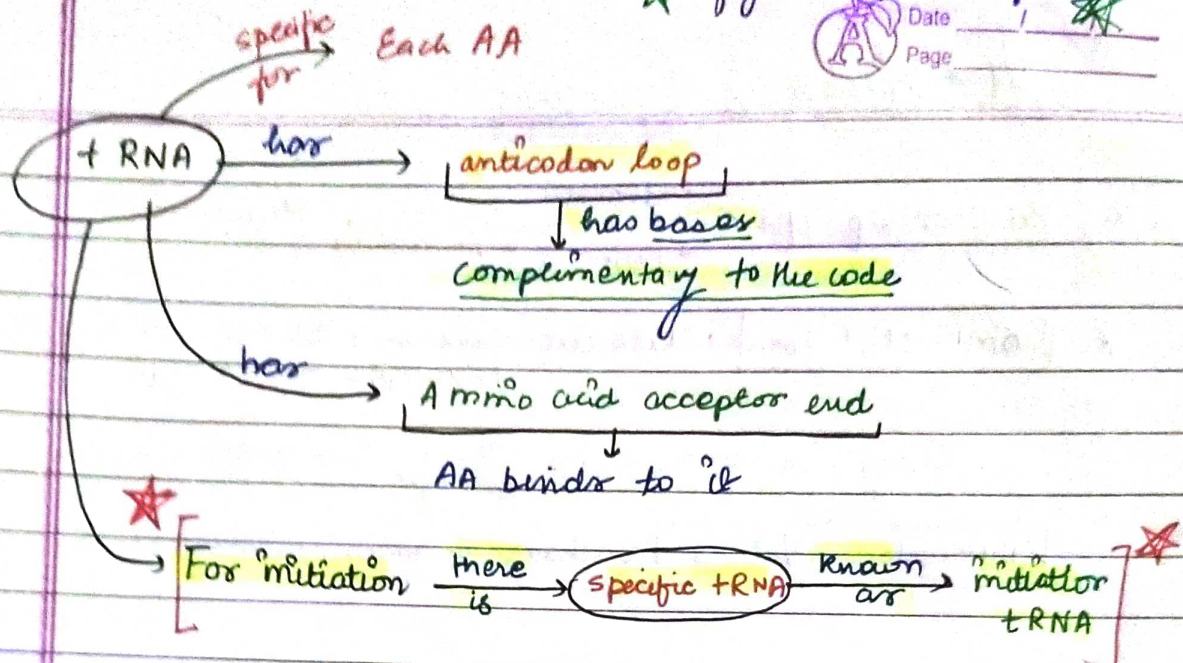 Date / 
Page
specific for Each AA
t RNA has anticodon loop
has bases
complimentary to the code
has
Amino acid acceptor end
AA binds to it
For initiation there is specific tRNA known as initiatior
tRNA